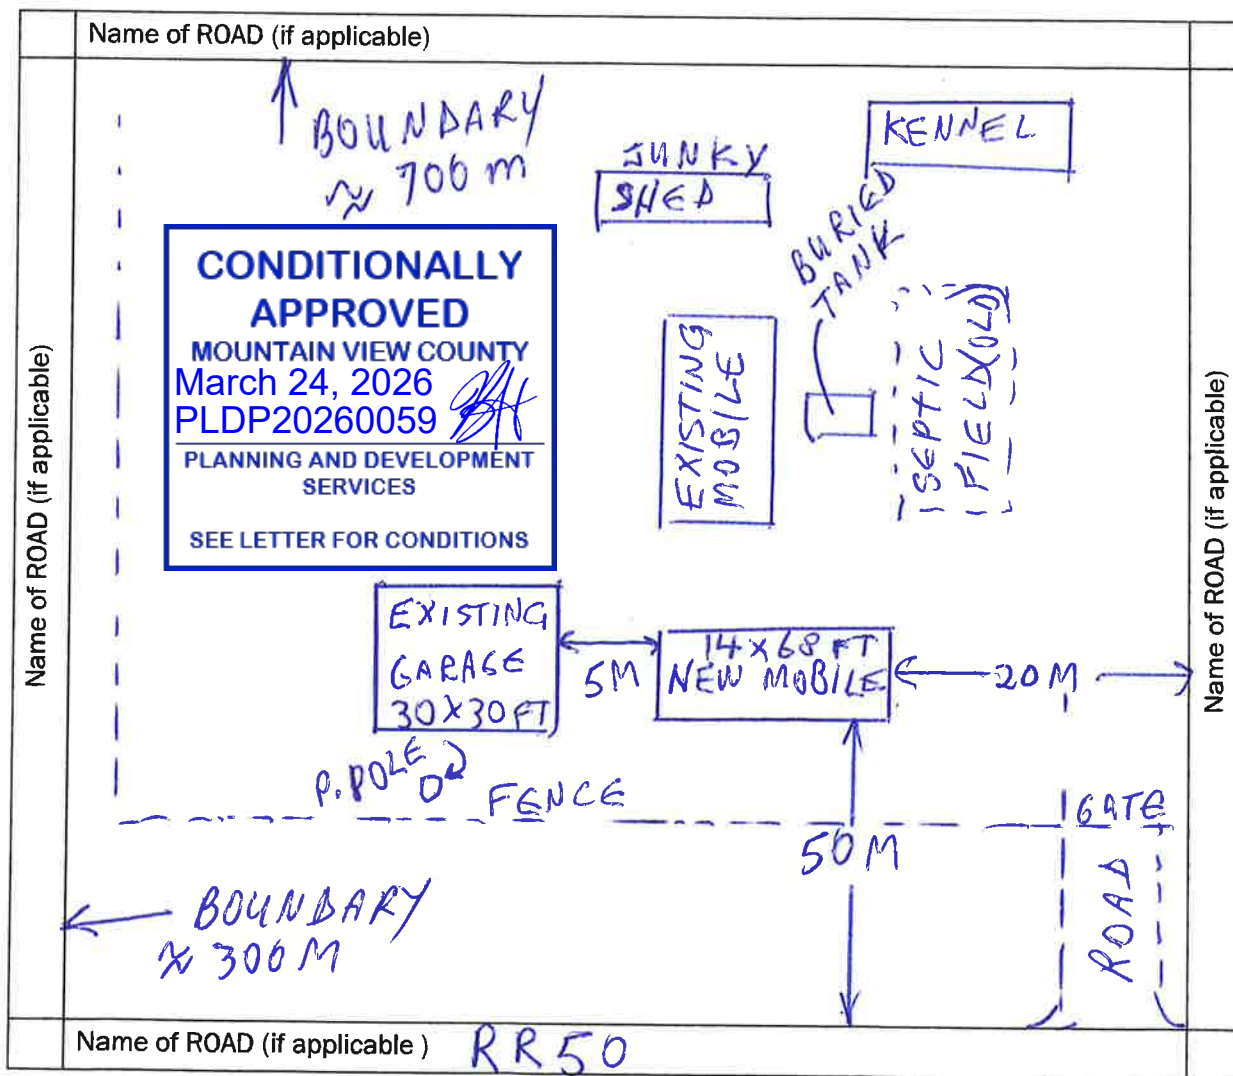 Name of ROAD (if applicable)
BOUNDARY
≈ 700 m
JUNKY
SHED
KENNEL
BURIED
TANK
CONDITIONALLY
APPROVED
MOUNTAIN VIEW COUNTY
March 24, 2026
PLDP20260059
PLANNING AND DEVELOPMENT
SERVICES
SEE LETTER FOR CONDITIONS
EXISTING
MOBILE
SEPTIC
FIELD (OLD)
Name of ROAD (if applicable)
Name of ROAD (if applicable)
EXISTING
GARAGE
30 X 30 FT
5M
14 X 68 FT
NEW MOBILE
20 M
P. POLE
FENCE
GATE
50 M
ROAD
BOUNDARY
≈ 300 M
Name of ROAD (if applicable )
RR50